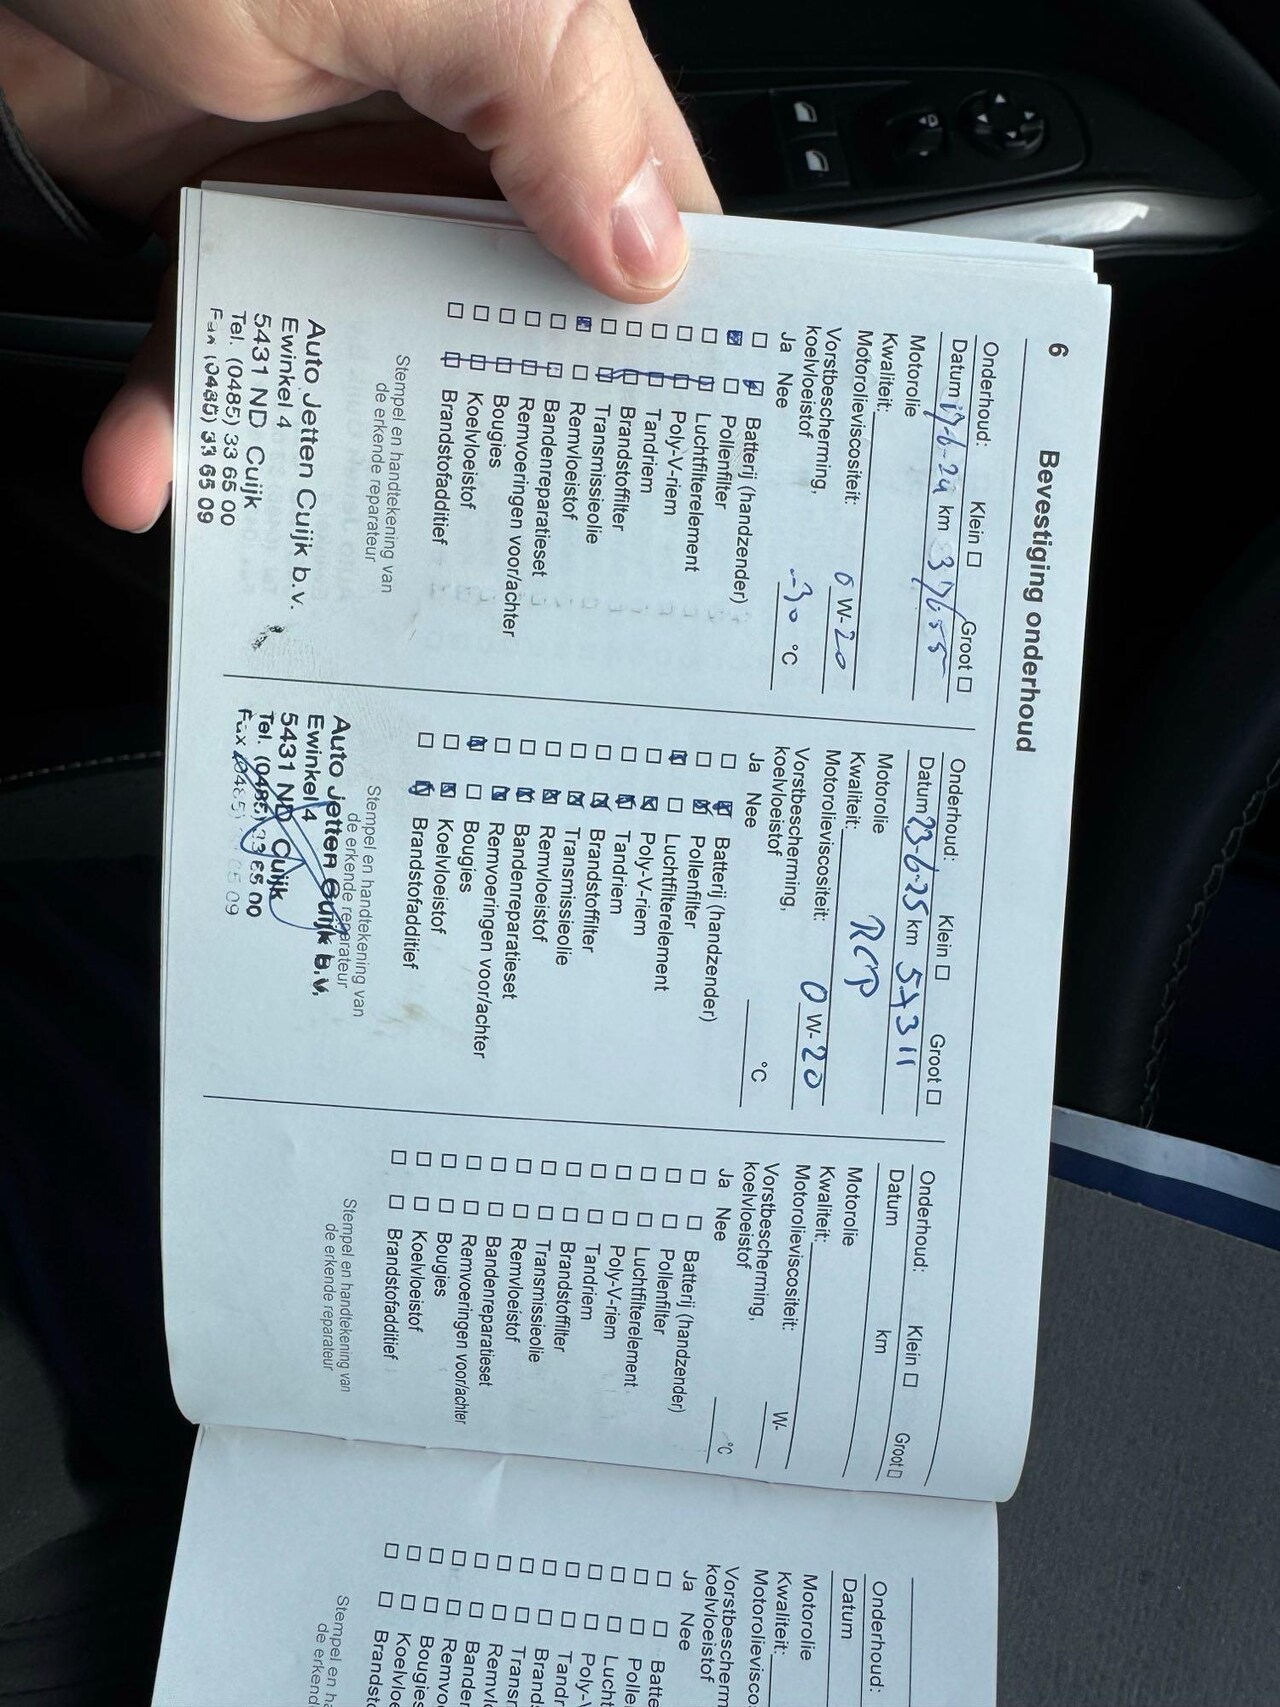 6 Bevestiging onderhoud
Onderhoud: Klein ☐ Groot ☐
Datum 17-6-24 km 37655
Motorolie
Kwaliteit:
Motorolieviscositeit: 0 W-20
Vorstbescherming,
koelvloeistof -30 °C
Ja Nee
Batterij (handzender)
Pollenfilter
Luchtfilterelement
Poly-V-riem
Tandriem
Brandstoffilter
Transmissieolie
Remvloeistof
Bandenreparatieset
Remvoeringen voor/achter
Bougies
Koelvloeistof
Brandstofadditief
Stempel en handtekening van
de erkende reparateur
Auto Jetten Cuijk b.v.
Ewinkel 4
5431 ND Cuijk
Tel. (0485) 33 65 00
Fax (0485) 33 65 09
Onderhoud: Klein ☐ Groot ☐
Datum 23-6-25 km 57311
Motorolie
Kwaliteit: RCP
Motorolieviscositeit: 0 W-20
Vorstbescherming,
koelvloeistof °C
Ja Nee
Batterij (handzender)
Pollenfilter
Luchtfilterelement
Poly-V-riem
Tandriem
Brandstoffilter
Transmissieolie
Remvloeistof
Bandenreparatieset
Remvoeringen voor/achter
Bougies
Koelvloeistof
Brandstofadditief
Stempel en handtekening van
de erkende reparateur
Auto Jetten Cuijk b.v.
Ewinkel 4
5431 ND Cuijk
Tel. (0485) 33 65 00
Fax (0485) 33 65 09
Onderhoud: Klein ☐ Groot ☐
Datum km
Motorolie
Kwaliteit:
Motorolieviscositeit: W-
Vorstbescherming,
koelvloeistof °C
Ja Nee
Batterij (handzender)
Pollenfilter
Luchtfilterelement
Poly-V-riem
Tandriem
Brandstoffilter
Transmissieolie
Remvloeistof
Bandenreparatieset
Remvoeringen voor/achter
Bougies
Koelvloeistof
Brandstofadditief
Stempel en handtekening van
de erkende reparateur
Onderhoud:
Datum
Motorolie
Kwaliteit:
Motorolievisco
Vorstbescherm
koelvloeistof
Ja Nee
Batte
Polle
Lucht
Poly-V
Tandr
Brand
Transr
Remvl
Banden
Remvo
Bougies
Koelvloe
Brandsto
Stempel en ha
de erkend